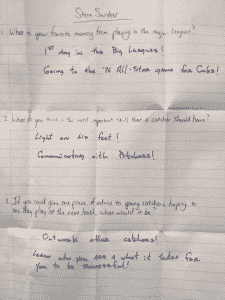 Steve Swisher
1. What is your favorite memory from playing in the major leagues?
1st day in the Big Leagues!
Going to the '76 All-Star game for Cubs!
2. What do you think is the most important skill that a catcher should have?
Light on his feet!
Communicating with Pitchers!
3. If you could give one piece of advice to young catchers hoping to
one day play at the next level, what would it be?
Outwork other catchers!
Know who you are & what it takes for
you to be successful!